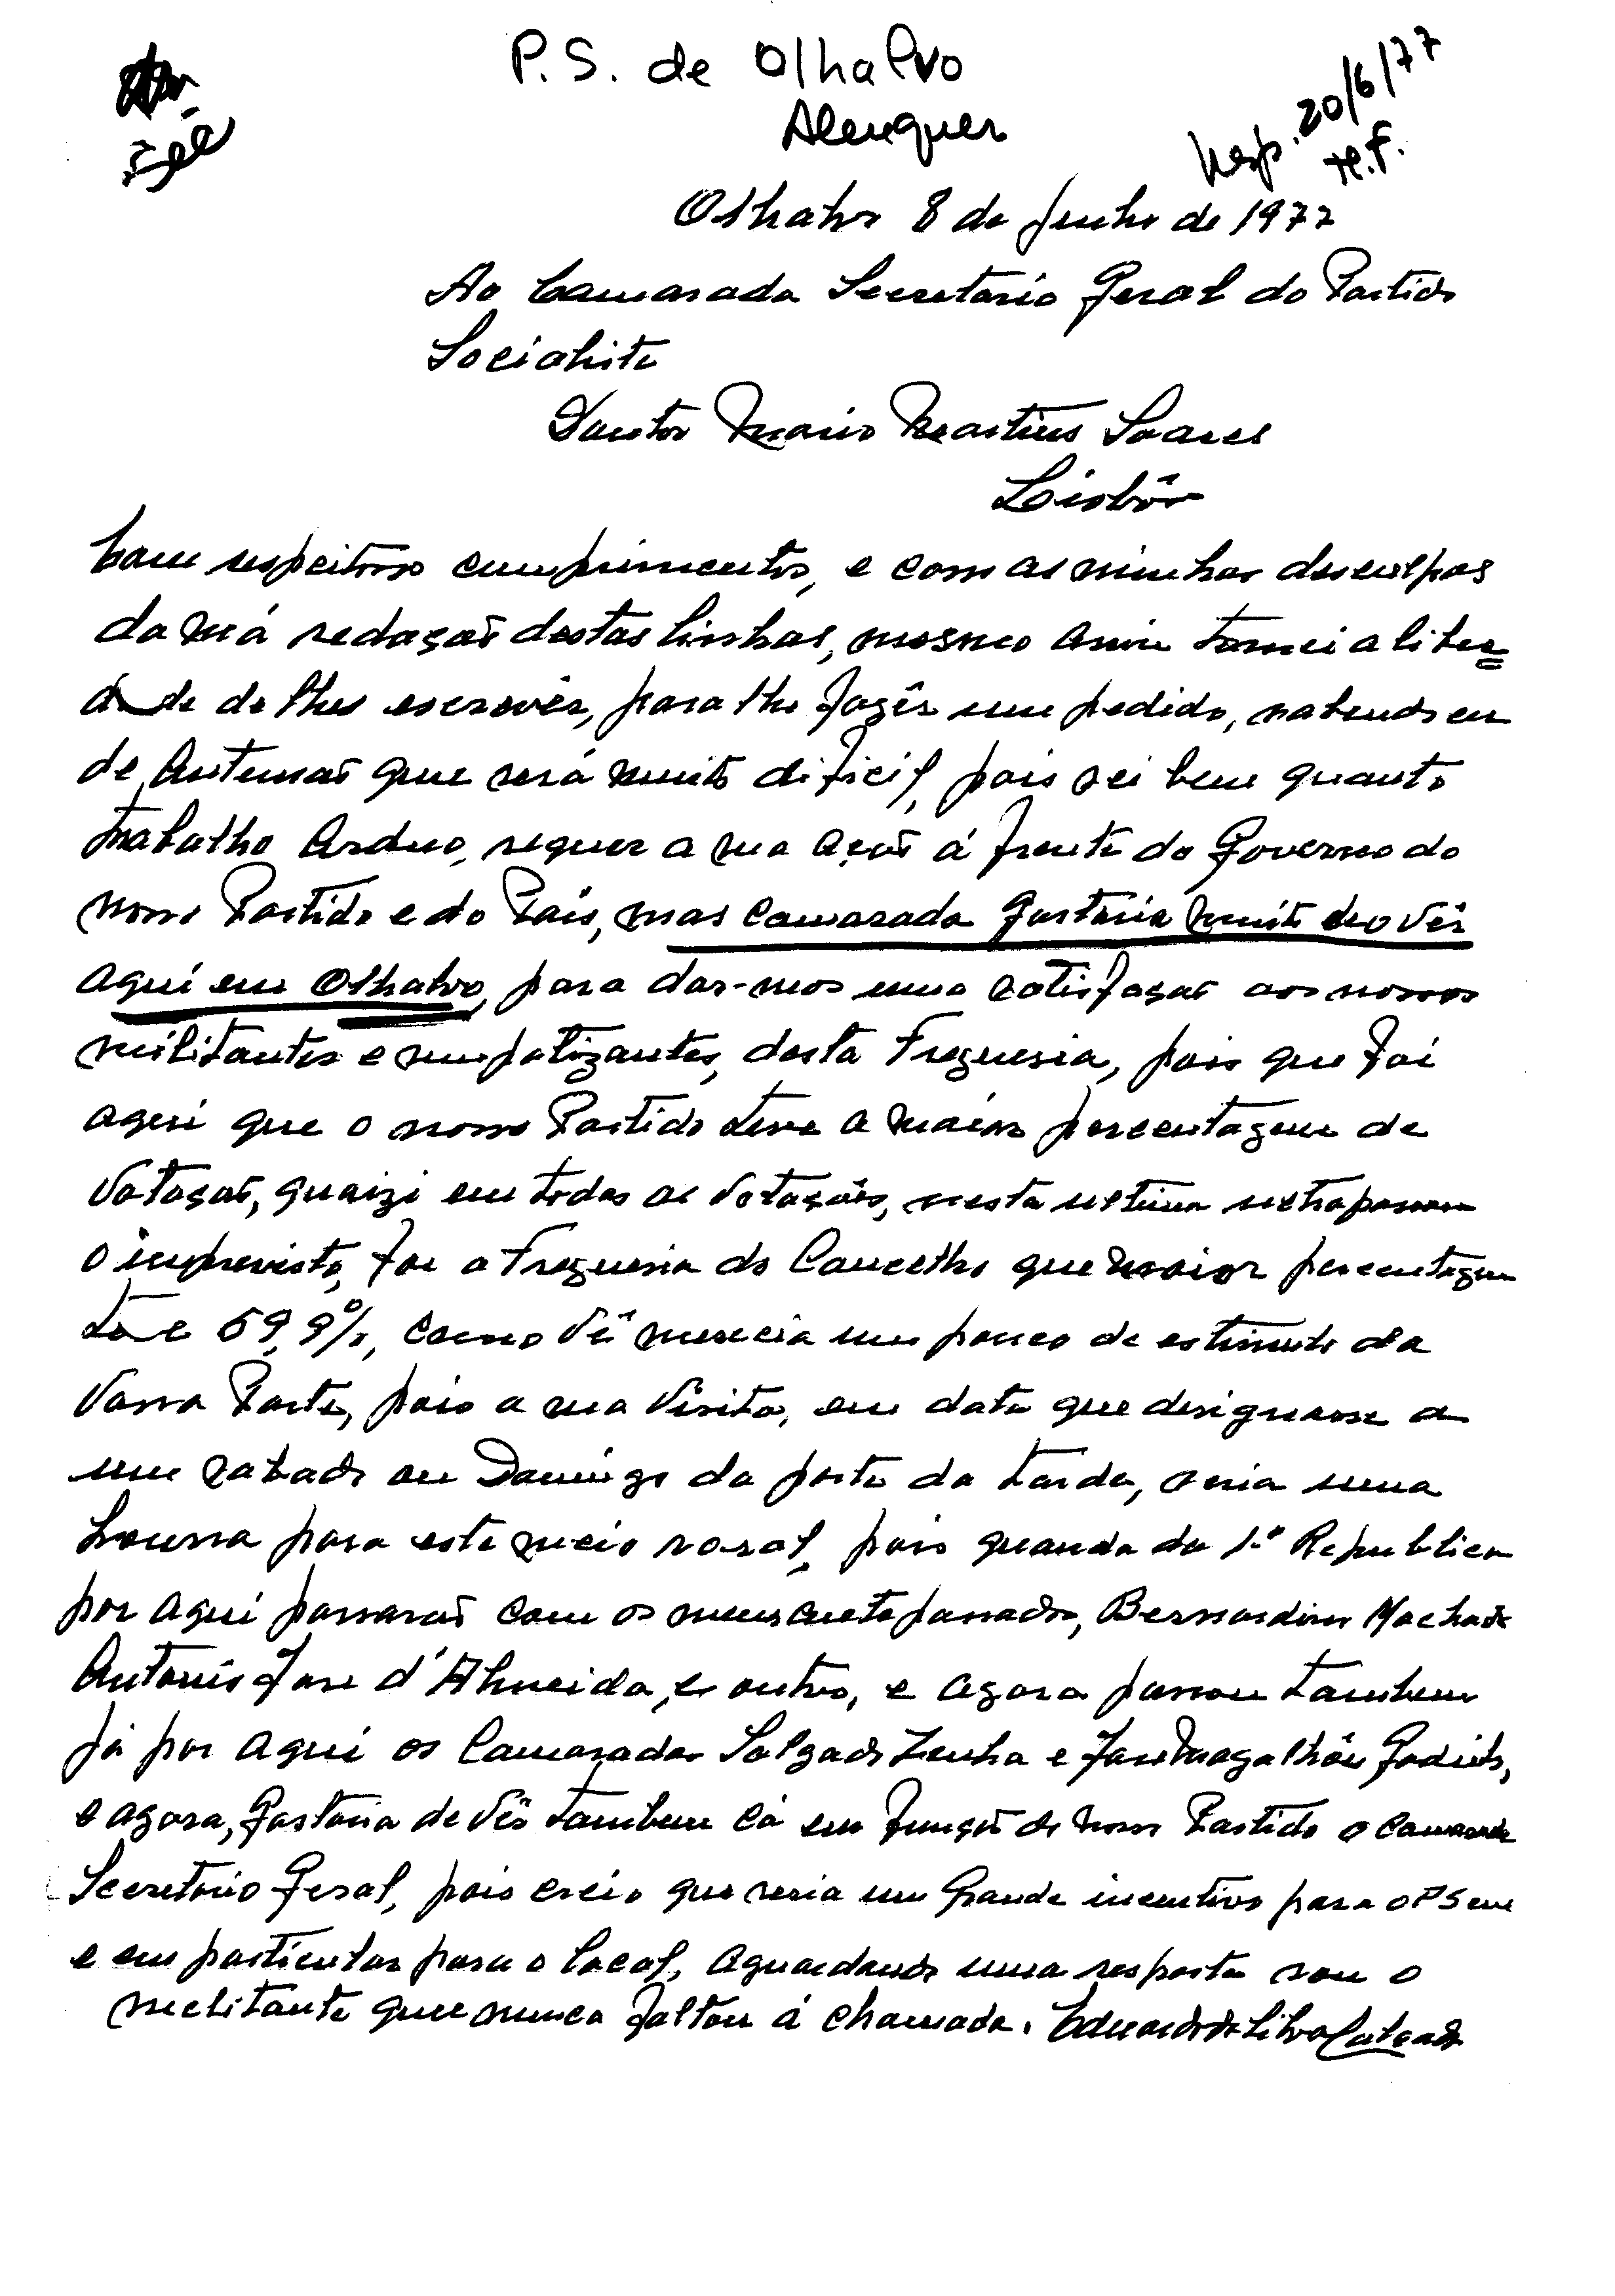 P.S. de Olhalvo
Alenquer
Resp. 20/6/77
Olhalvo 8 de Junho de 1977
Ao Camarada Secretario Geral do Partido
Socialista
Doutor Mario Martins Soares
Lisbôa
Com respeitoso cumprimentos, e com as minhas desculpas
da má redação destas linhas, mesmo assim tomei a liber=
dade de lhes escrevêr, para lhe fazêr um pedido, sabendo eu
de Antemaõ que será muito dificil, pois sei bem quanto
trabalho Arduo, requer a sua Açaõ á frente do Governo do
nosso Partido e do Païs, mas Camarada gostaria muito de o Vêr
aqui em Olhalvo, para dar-mos uma satisfaçaõ aos nossos
militantes e simpatizantes, desta Freguesia, pois que foi
aqui que o nosso Partido teve a maiór percentagem de
Votaçaõ, quaizi em todas as Votações, nesta ultima ultrapassou
o imprevisto, foi a Freguesia do Concelho que maior percentagem
teve 59,9%, como Vê merecia um pouco de estimulo da
Vossa Parte, pois a sua Visita, em data que designasse a
um sabado ou Domingo da parte da tarde, seria uma
honrra para este meio rural, pois quando da 1ª Republica
por aqui passaraõ com os meus antepassados, Bernardino Machado
Antonio Jose d'Almeida, e outros, e agora passou tambem
já por aqui os Camaradas Salgado Zenha e Jose Magalhães Godinho,
e agora, gostaria de Vêr tambem cá em funçaõ do nosso Partido o Camarada
Secretário Geral, pois creio que seria um grande incentivo para o PS em
e em particular para o local, aguardando uma resposta sou o
melitante que nunca faltou á chamada. Eduardo da Silva